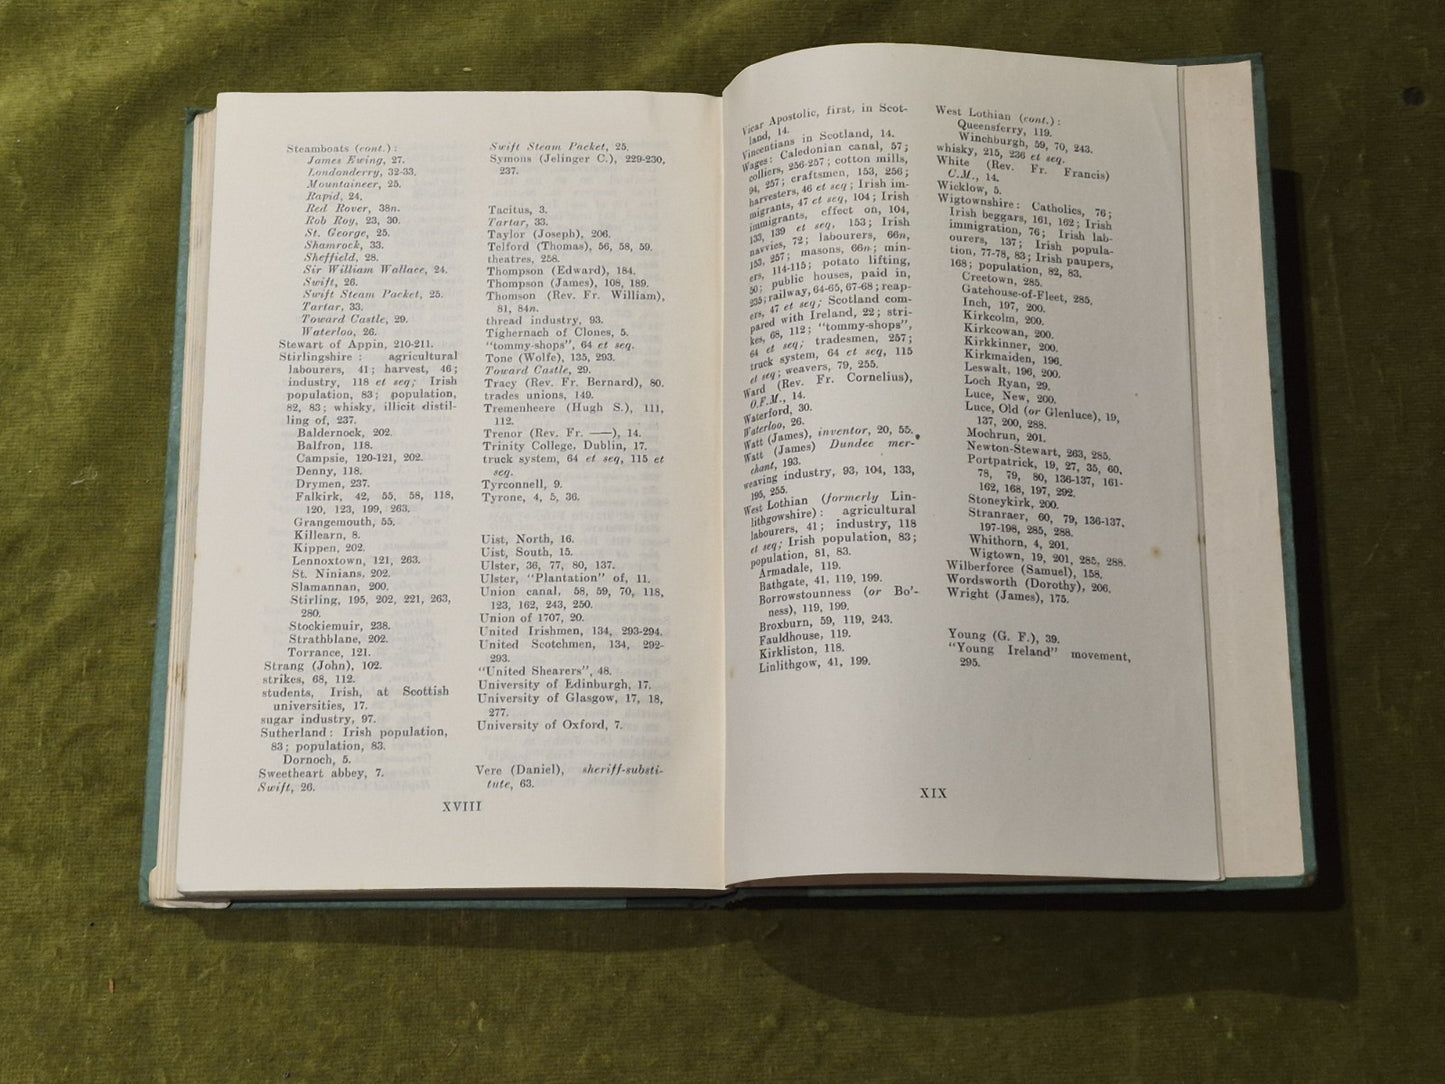 Steamboats (cont.):
James Ewing, 27.
Londonderry, 32-33.
Mountaineer, 25.
Rapid, 24.
Red Rover, 38n.
Rob Roy, 23, 30.
St. George, 25.
Shamrock, 33.
Sheffield, 28.
Sir William Wallace, 24.
Swift, 26.
Swift Steam Packet, 25.
Tartar, 33.
Toward Castle, 29.
Waterloo, 26.
Stewart of Appin, 210-211.
Stirlingshire: agricultural
labourers, 41; harvest, 46;
industry, 118 et seq; Irish
population, 83; population,
82, 83; whisky, illicit distil-
ling of, 237.
Baldernock, 202.
Balfron, 118.
Campsie, 120-121, 202.
Denny, 118.
Drymen, 237.
Falkirk, 42, 55, 58, 118,
120, 123, 199, 263.
Grangemouth, 55.
Killearn, 8.
Kippen, 202.
Lennoxtown, 121, 263.
St. Ninians, 202.
Slamannan, 200.
Stirling, 195, 202, 221, 263,
280.
Stockiemuir, 238.
Strathblane, 202.
Torrance, 121.
Strang (John), 102.
strikes, 68, 112.
students, Irish, at Scottish
universities, 17.
sugar industry, 97.
Sutherland: Irish population,
83; population, 83.
Dornoch, 5.
Sweetheart abbey, 7.
Swift, 26.
Swift Steam Packet, 25.
Symons (Jelinger C.), 229-230,
237.
Tacitus, 3.
Tartar, 33.
Taylor (Joseph), 206.
Telford (Thomas), 56, 58, 59.
theatres, 258.
Thompson (Edward), 184.
Thompson (James), 108, 189.
Thomson (Rev. Fr. William),
81, 84n.
thread industry, 93.
Tighernach of Clones, 5.
"tommy-shops", 64 et seq.
Tone (Wolfe), 135, 293.
Toward Castle, 29.
Tracy (Rev. Fr. Bernard), 80.
trades unions, 149.
Tremenheere (Hugh S.), 111,
112.
Trenor (Rev. Fr. ——), 14.
Trinity College, Dublin, 17.
truck system, 64 et seq, 115 et
seq.
Tyrconnell, 9.
Tyrone, 4, 5, 36.
Uist, North, 16.
Uist, South, 15.
Ulster, 36, 77, 80, 137.
Ulster, "Plantation" of, 11.
Union canal, 58, 59, 70, 118,
123, 162, 243, 250.
Union of 1707, 20.
United Irishmen, 134, 293-294.
United Scotchmen, 134, 292-
293.
"United Shearers", 48.
University of Edinburgh, 17.
University of Glasgow, 17, 18,
277.
University of Oxford, 7.
Vere (Daniel), sheriff-substi-
tute, 63.
XVIII
Vicar Apostolic, first, in Scot-
land, 14.
Vincentians in Scotland, 14.
Wages: Caledonian canal, 57;
colliers, 256-257; cotton mills,
94, 257; craftsmen, 153, 256;
harvesters, 46 et seq; Irish im-
migrants, 47 et seq, 104; Irish
immigrants, effect on, 104,
133, 139 et seq, 153; Irish
navvies, 72; labourers, 66n,
153, 257; masons, 66n; min-
ers, 114-115; potato lifting,
50; public houses, paid in,
235; railway, 64-65, 67-68; reap-
ers, 47 et seq; Scotland com-
pared with Ireland, 22; stri-
kes, 68, 112; "tommy-shops",
64 et seq; tradesmen, 257;
truck system, 64 et seq, 115
et seq; weavers, 79, 255.
Ward (Rev. Fr. Cornelius),
O.F.M., 14.
Waterford, 30.
Waterloo, 26.
Watt (James), inventor, 20, 55.
Watt (James) Dundee mer-
chant, 193.
weaving industry, 93, 104, 133,
195, 255.
West Lothian (formerly Lin-
lithgowshire): agricultural
labourers, 41; industry, 118
et seq; Irish population, 83;
population, 81, 83.
Armadale, 119.
Bathgate, 41, 119, 199.
Borrowstounness (or Bo'-
ness), 119, 199.
Broxburn, 59, 119, 243.
Fauldhouse, 119.
Kirkliston, 118.
Linlithgow, 41, 199.
West Lothian (cont.):
Queensferry, 119.
Winchburgh, 59, 70, 243.
whisky, 215, 236 et seq.
White (Rev. Fr. Francis)
C.M., 14.
Wicklow, 5.
Wigtownshire: Catholics, 76;
Irish beggars, 161, 162; Irish
immigration, 76; Irish lab-
ourers, 137; Irish popula-
tion, 77-78, 83; Irish paupers,
168; population, 82, 83.
Creetown, 285.
Gatehouse-of-Fleet, 285.
Inch, 197, 200.
Kirkcolm, 200.
Kirkcowan, 200.
Kirkkinner, 200.
Kirkmaiden, 196.
Leswalt, 196, 200.
Loch Ryan, 29.
Luce, New, 200.
Luce, Old (or Glenluce), 19,
137, 200, 288.
Mochrun, 201.
Newton-Stewart, 263, 285.
Portpatrick, 19, 27, 35, 60,
78, 79, 80, 136-137, 161-
162, 168, 197, 292.
Stoneykirk, 200.
Stranraer, 60, 79, 136-137,
197-198, 285, 288.
Whithorn, 4, 201.
Wigtown, 19, 201, 285, 288.
Wilberforce (Samuel), 158.
Wordsworth (Dorothy), 206.
Wright (James), 175.
Young (G. F.), 39.
"Young Ireland" movement,
295.
XIX